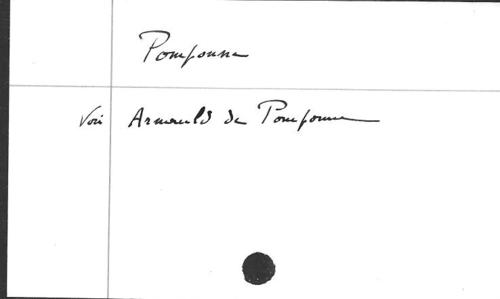 Pomponne
Voir Arnauld de Pomponne